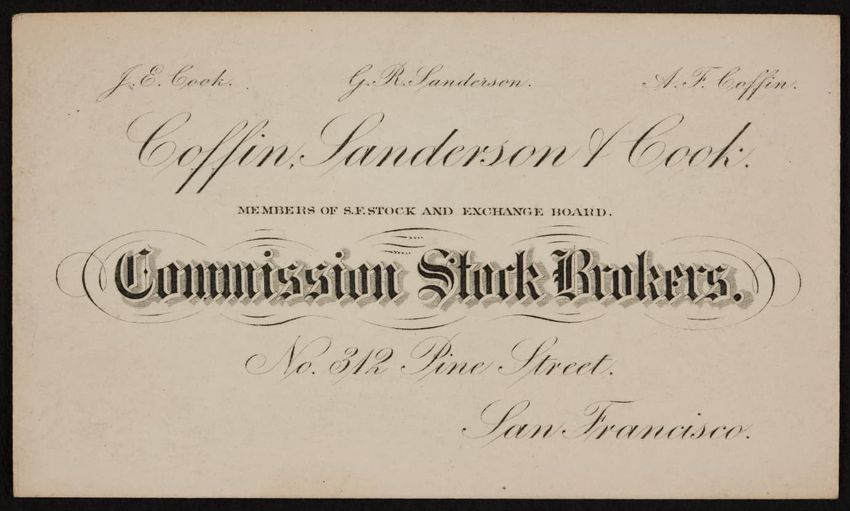 J. E. Cook. G. R. Sanderson. A. F. Coffin.
Coffin, Sanderson & Cook.
MEMBERS OF S.F. STOCK AND EXCHANGE BOARD.
Commission Stock Brokers.
No. 312 Pine Street.
San Francisco.